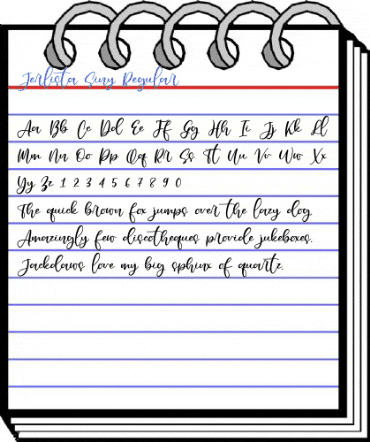 Jerlista Suny Regular
Aa Bb Cc Dd Ee Ff Gg Hh Ii Jj Kk Ll
Mm Nn Oo Pp Qq Rr Ss Tt Uu Vv Ww Xx
Yy Zz 1 2 3 4 5 6 7 8 9 0
The quick brown fox jumps over the lazy dog
Amazingly few discotheques provide jukeboxes.
Jackdaws love my big sphinx of quartz.